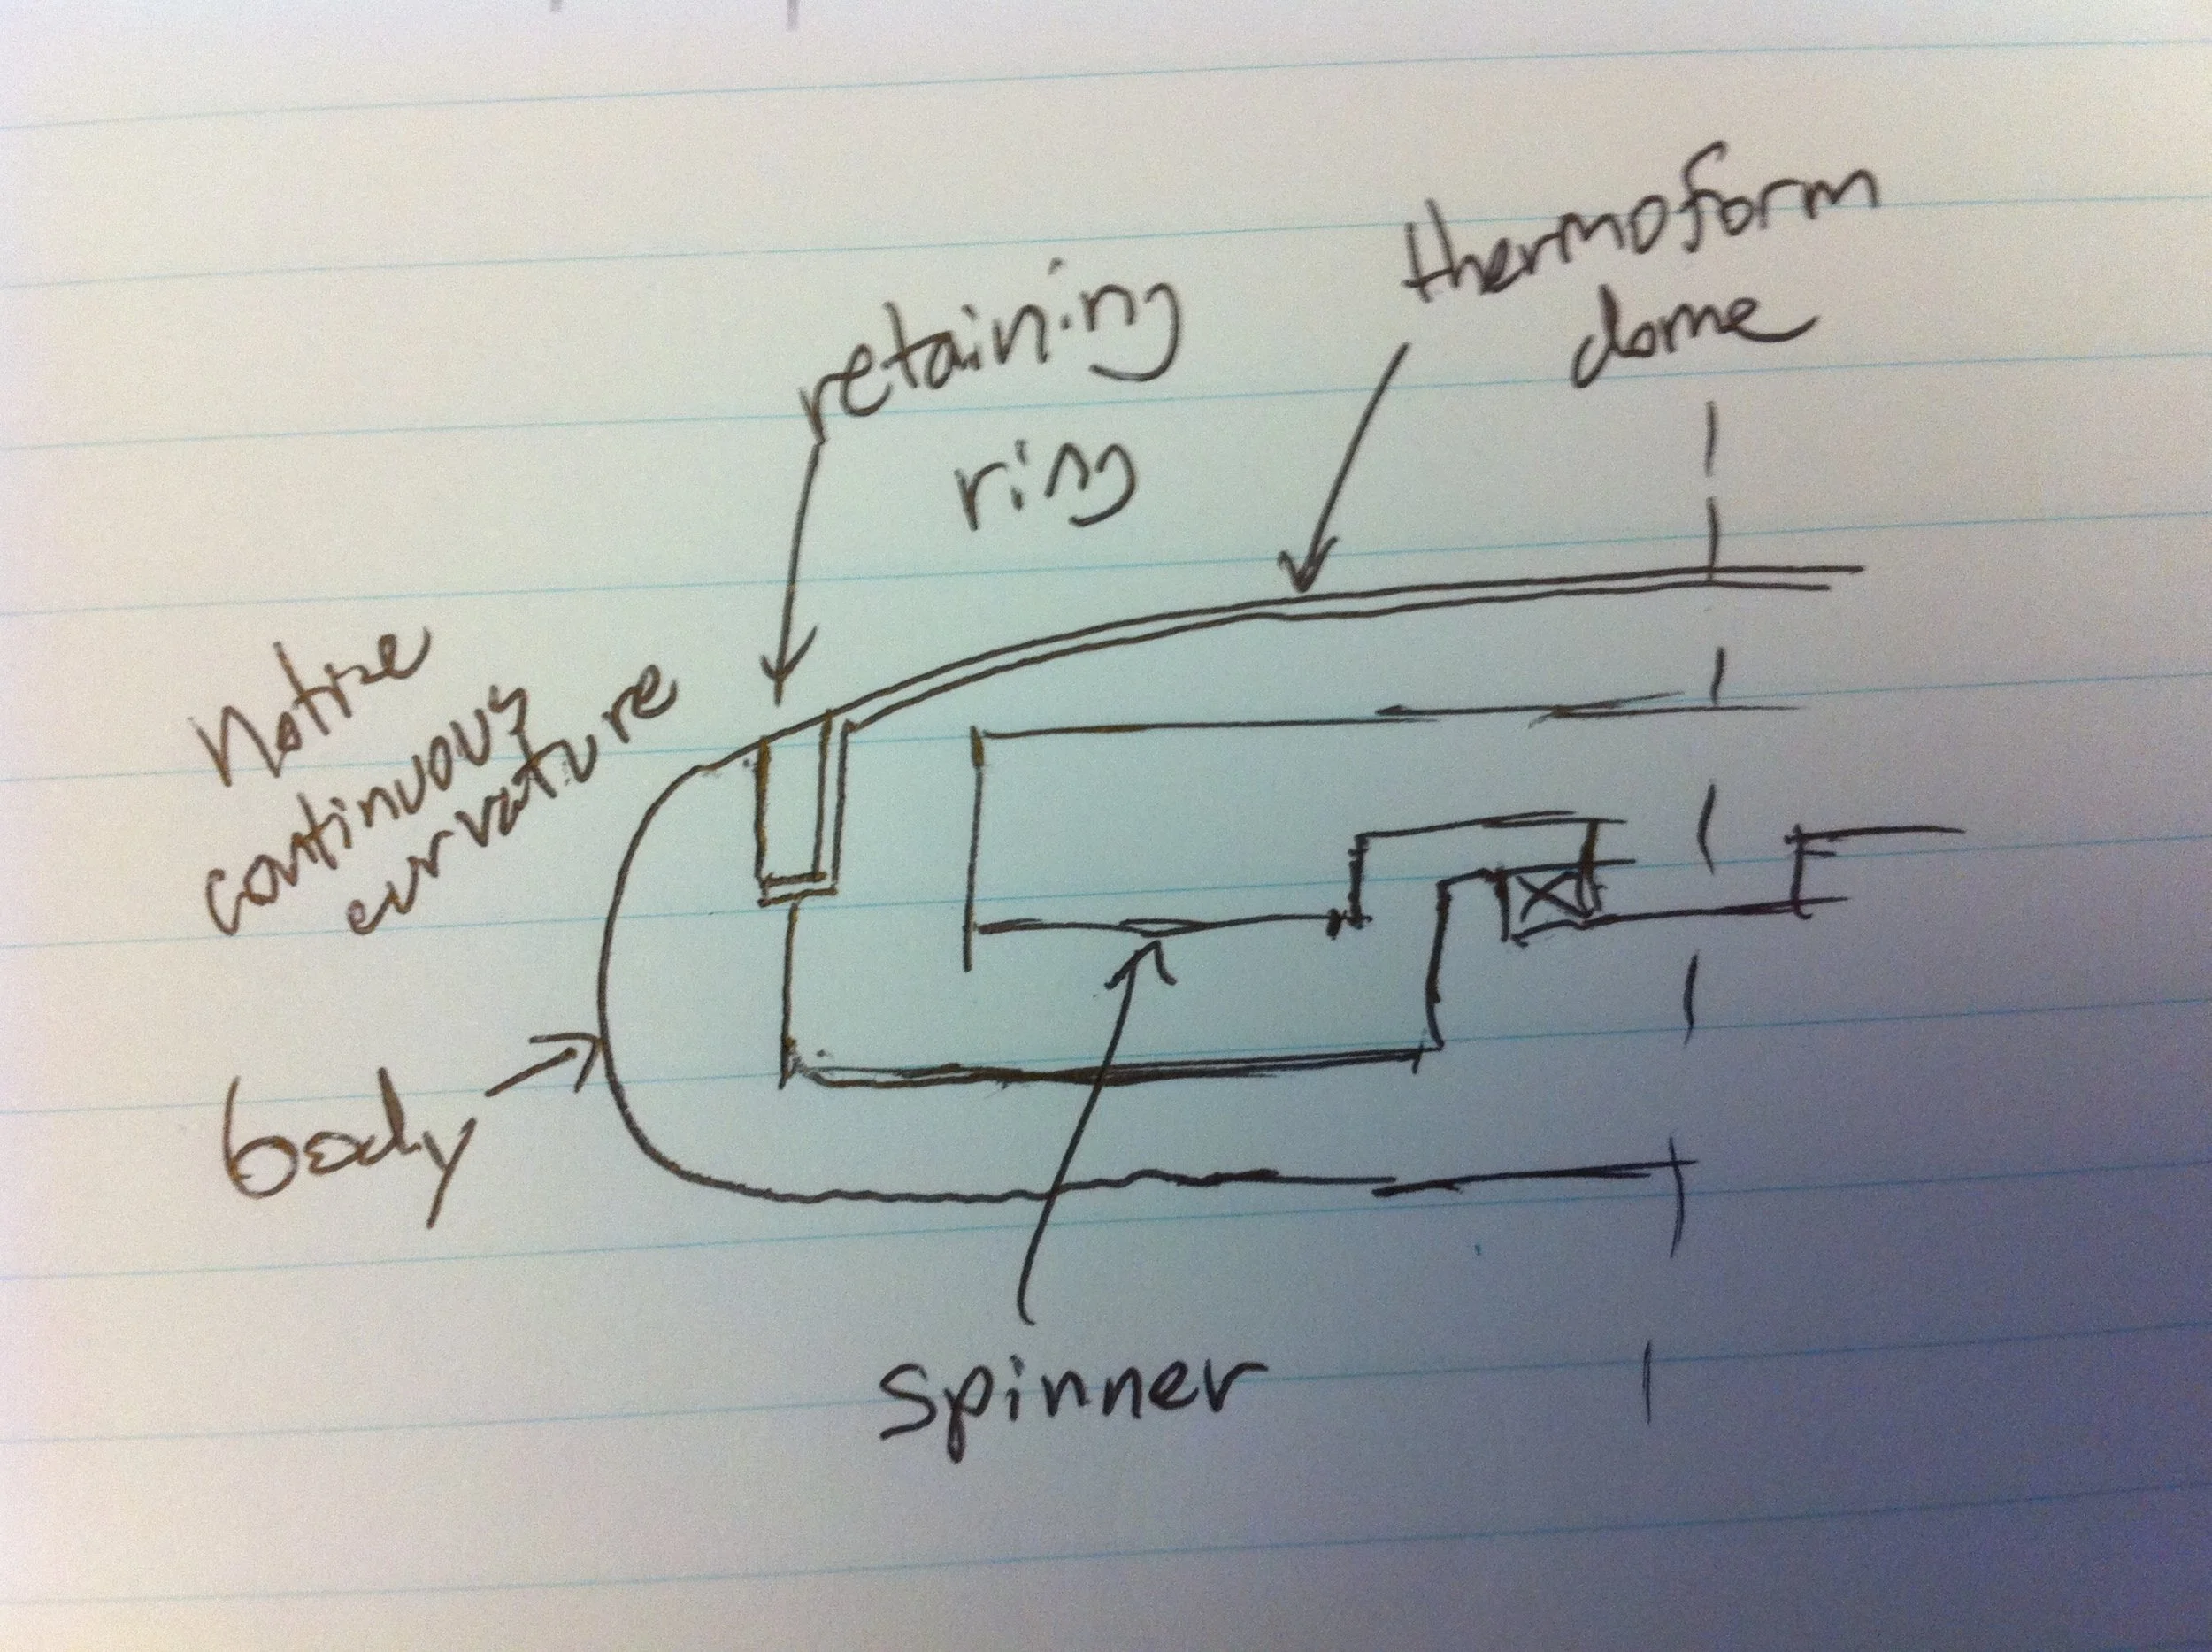 thermoform
dome
retaining
ring
Notice
continuous
curvature
body
spinner